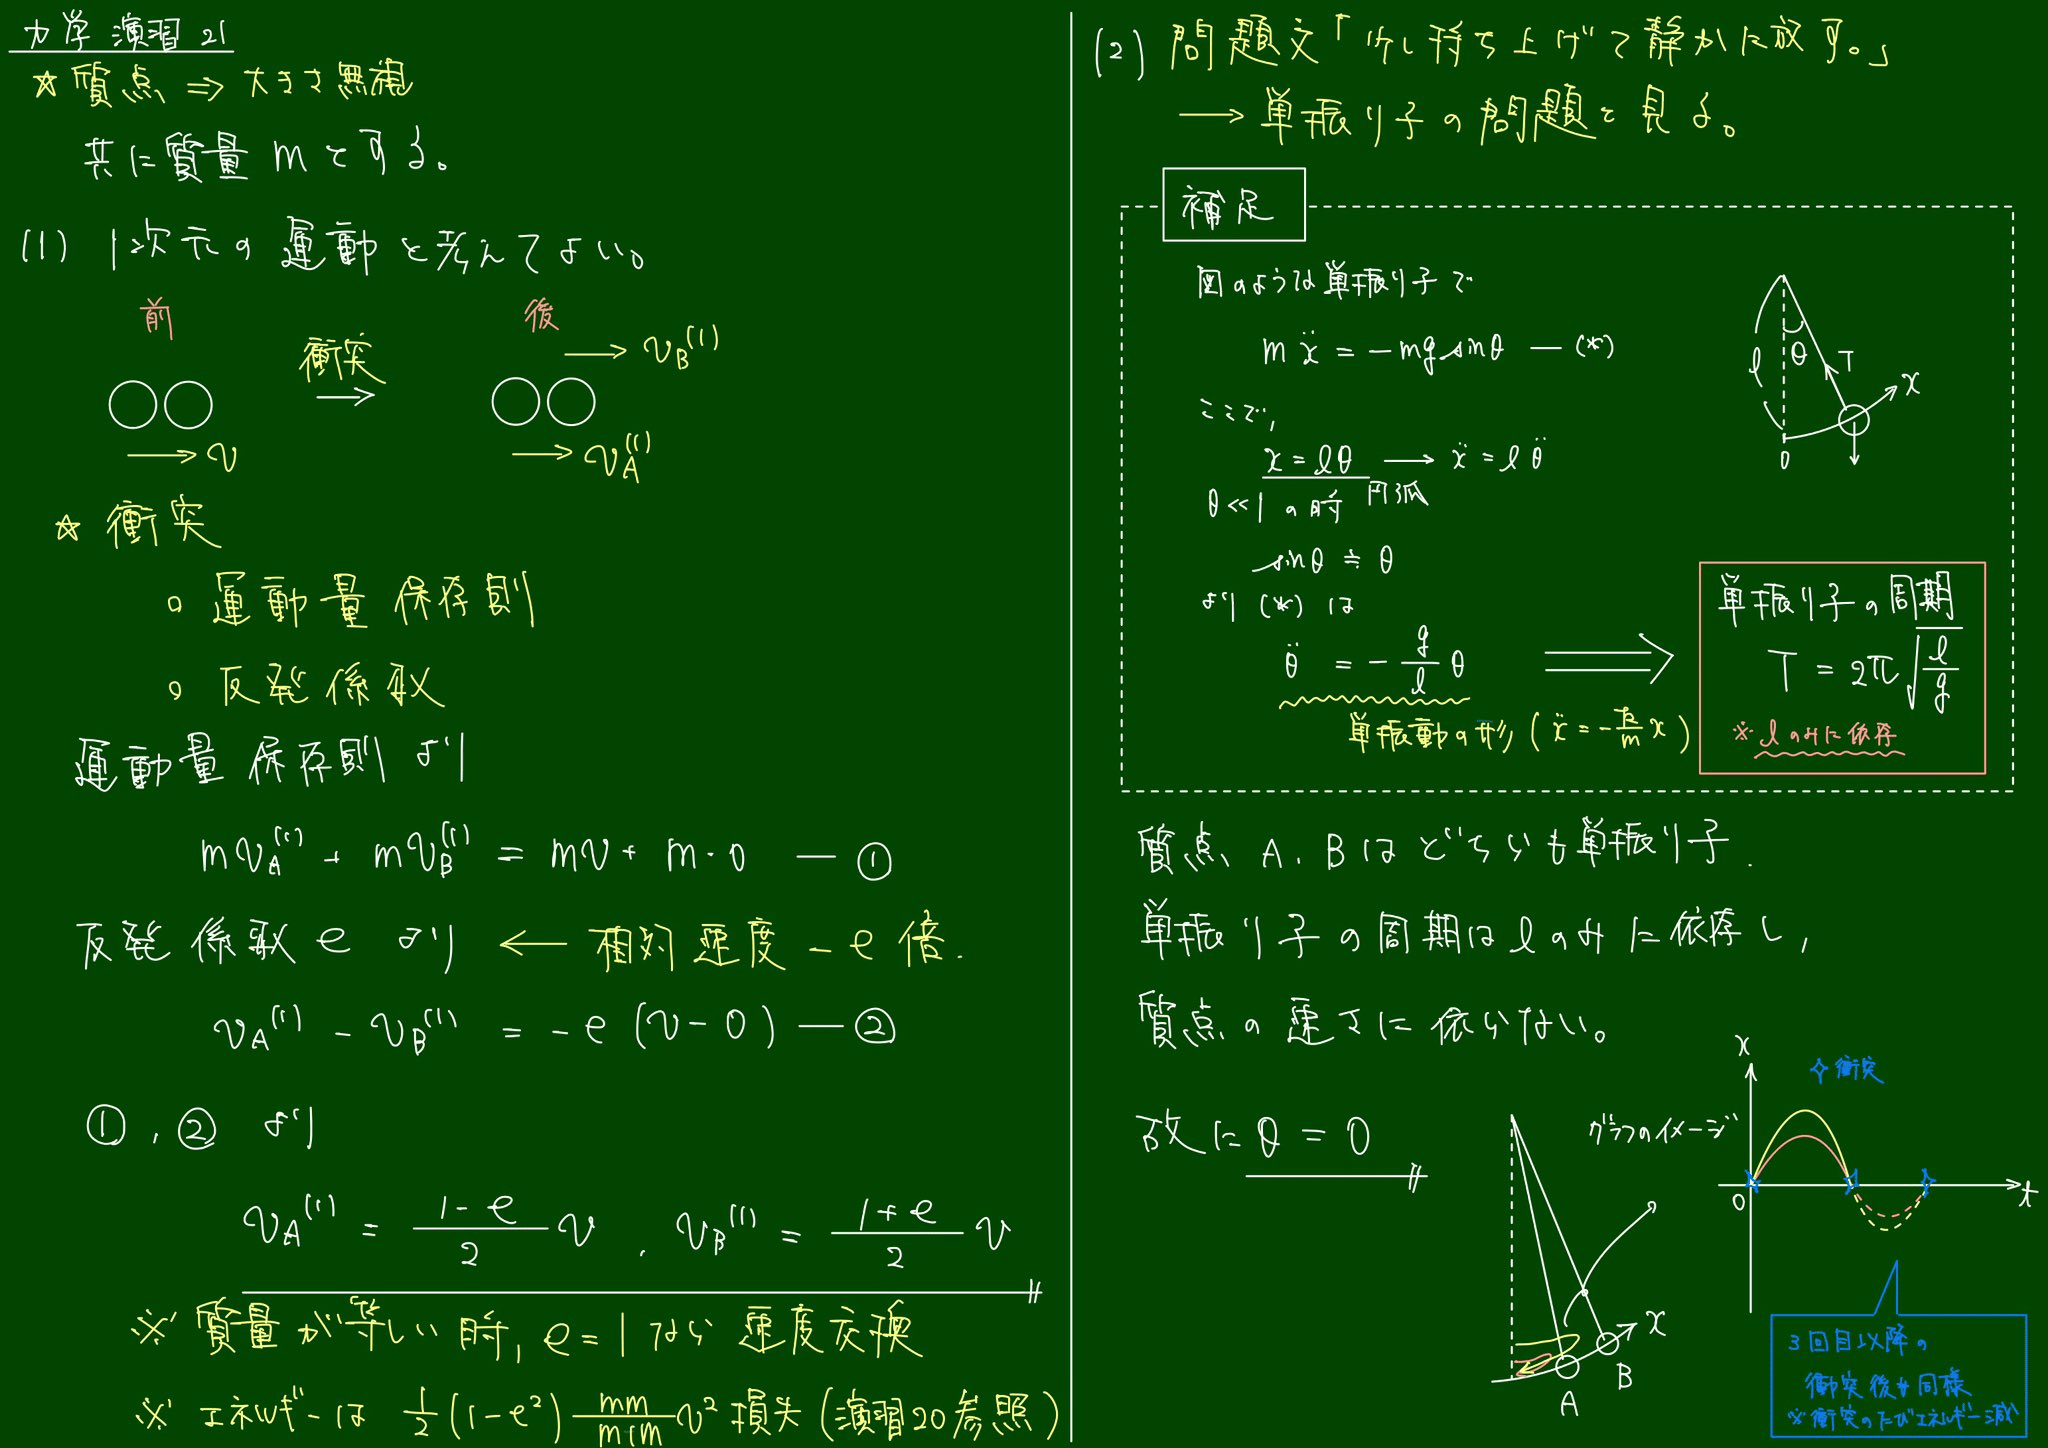 力学 演習 21
☆ 質点 ⇒ 大きさ無視
共に質量 m とする。
(1) 1次元の運動と考えてよい。
前 衝突 → 後
→ v
→ v_B^(1)
→ v_A^(1)
☆ 衝突
○ 運動量保存則
○ 反発係数
運動量保存則より
mv_A^(1) + mv_B^(1) = mv + m・0 — ①
反発係数 e より ← 相対速度 -e 倍.
v_A^(1) - v_B^(1) = -e (v-0) — ②
①, ② より
v_A^(1) = (1-e)/2 v , v_B^(1) = (1+e)/2 v
※ 質量が等しい時, e=1 なら 速度交換
※ エネルギーは 1/2 (1-e²) mm/(m+m) v² 損失 (演習20参照)
(2) 問題文「少し持ち上げて静かに放す。」
→ 単振り子の問題と見る。
補足
図のような単振り子で
m ẍ = -mg sinθ — (*)
ここで,
x = lθ → ẍ = l θ̈
円弧
θ << 1 の時
sinθ ≒ θ
より (*) は
θ̈ = - g/l θ ⇒
単振動の形 ( ẍ = - k/m x )
単振り子の周期
T = 2π √(l/g)
※ l のみに依存
l θ T x 0
質点 A, B はどちらも単振り子.
単振り子の周期は l のみに依存し,
質点の速さに依らない。
故に θ = 0
A B x
グラフのイメージ
x 0 t
✧ 衝突
3回目以降の
衝突後も同様
※衝突のたびエネルギー減